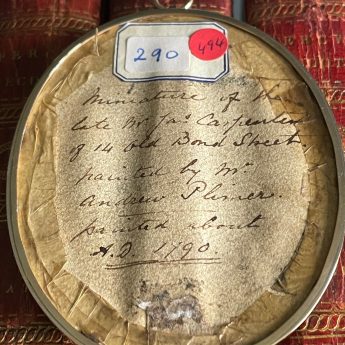 290
494
Miniature of the
late Mr Jas Carpenter
of 14 Old Bond Street,
painted by Mr
Andrew Plimer.
painted about
A.D. 1790.